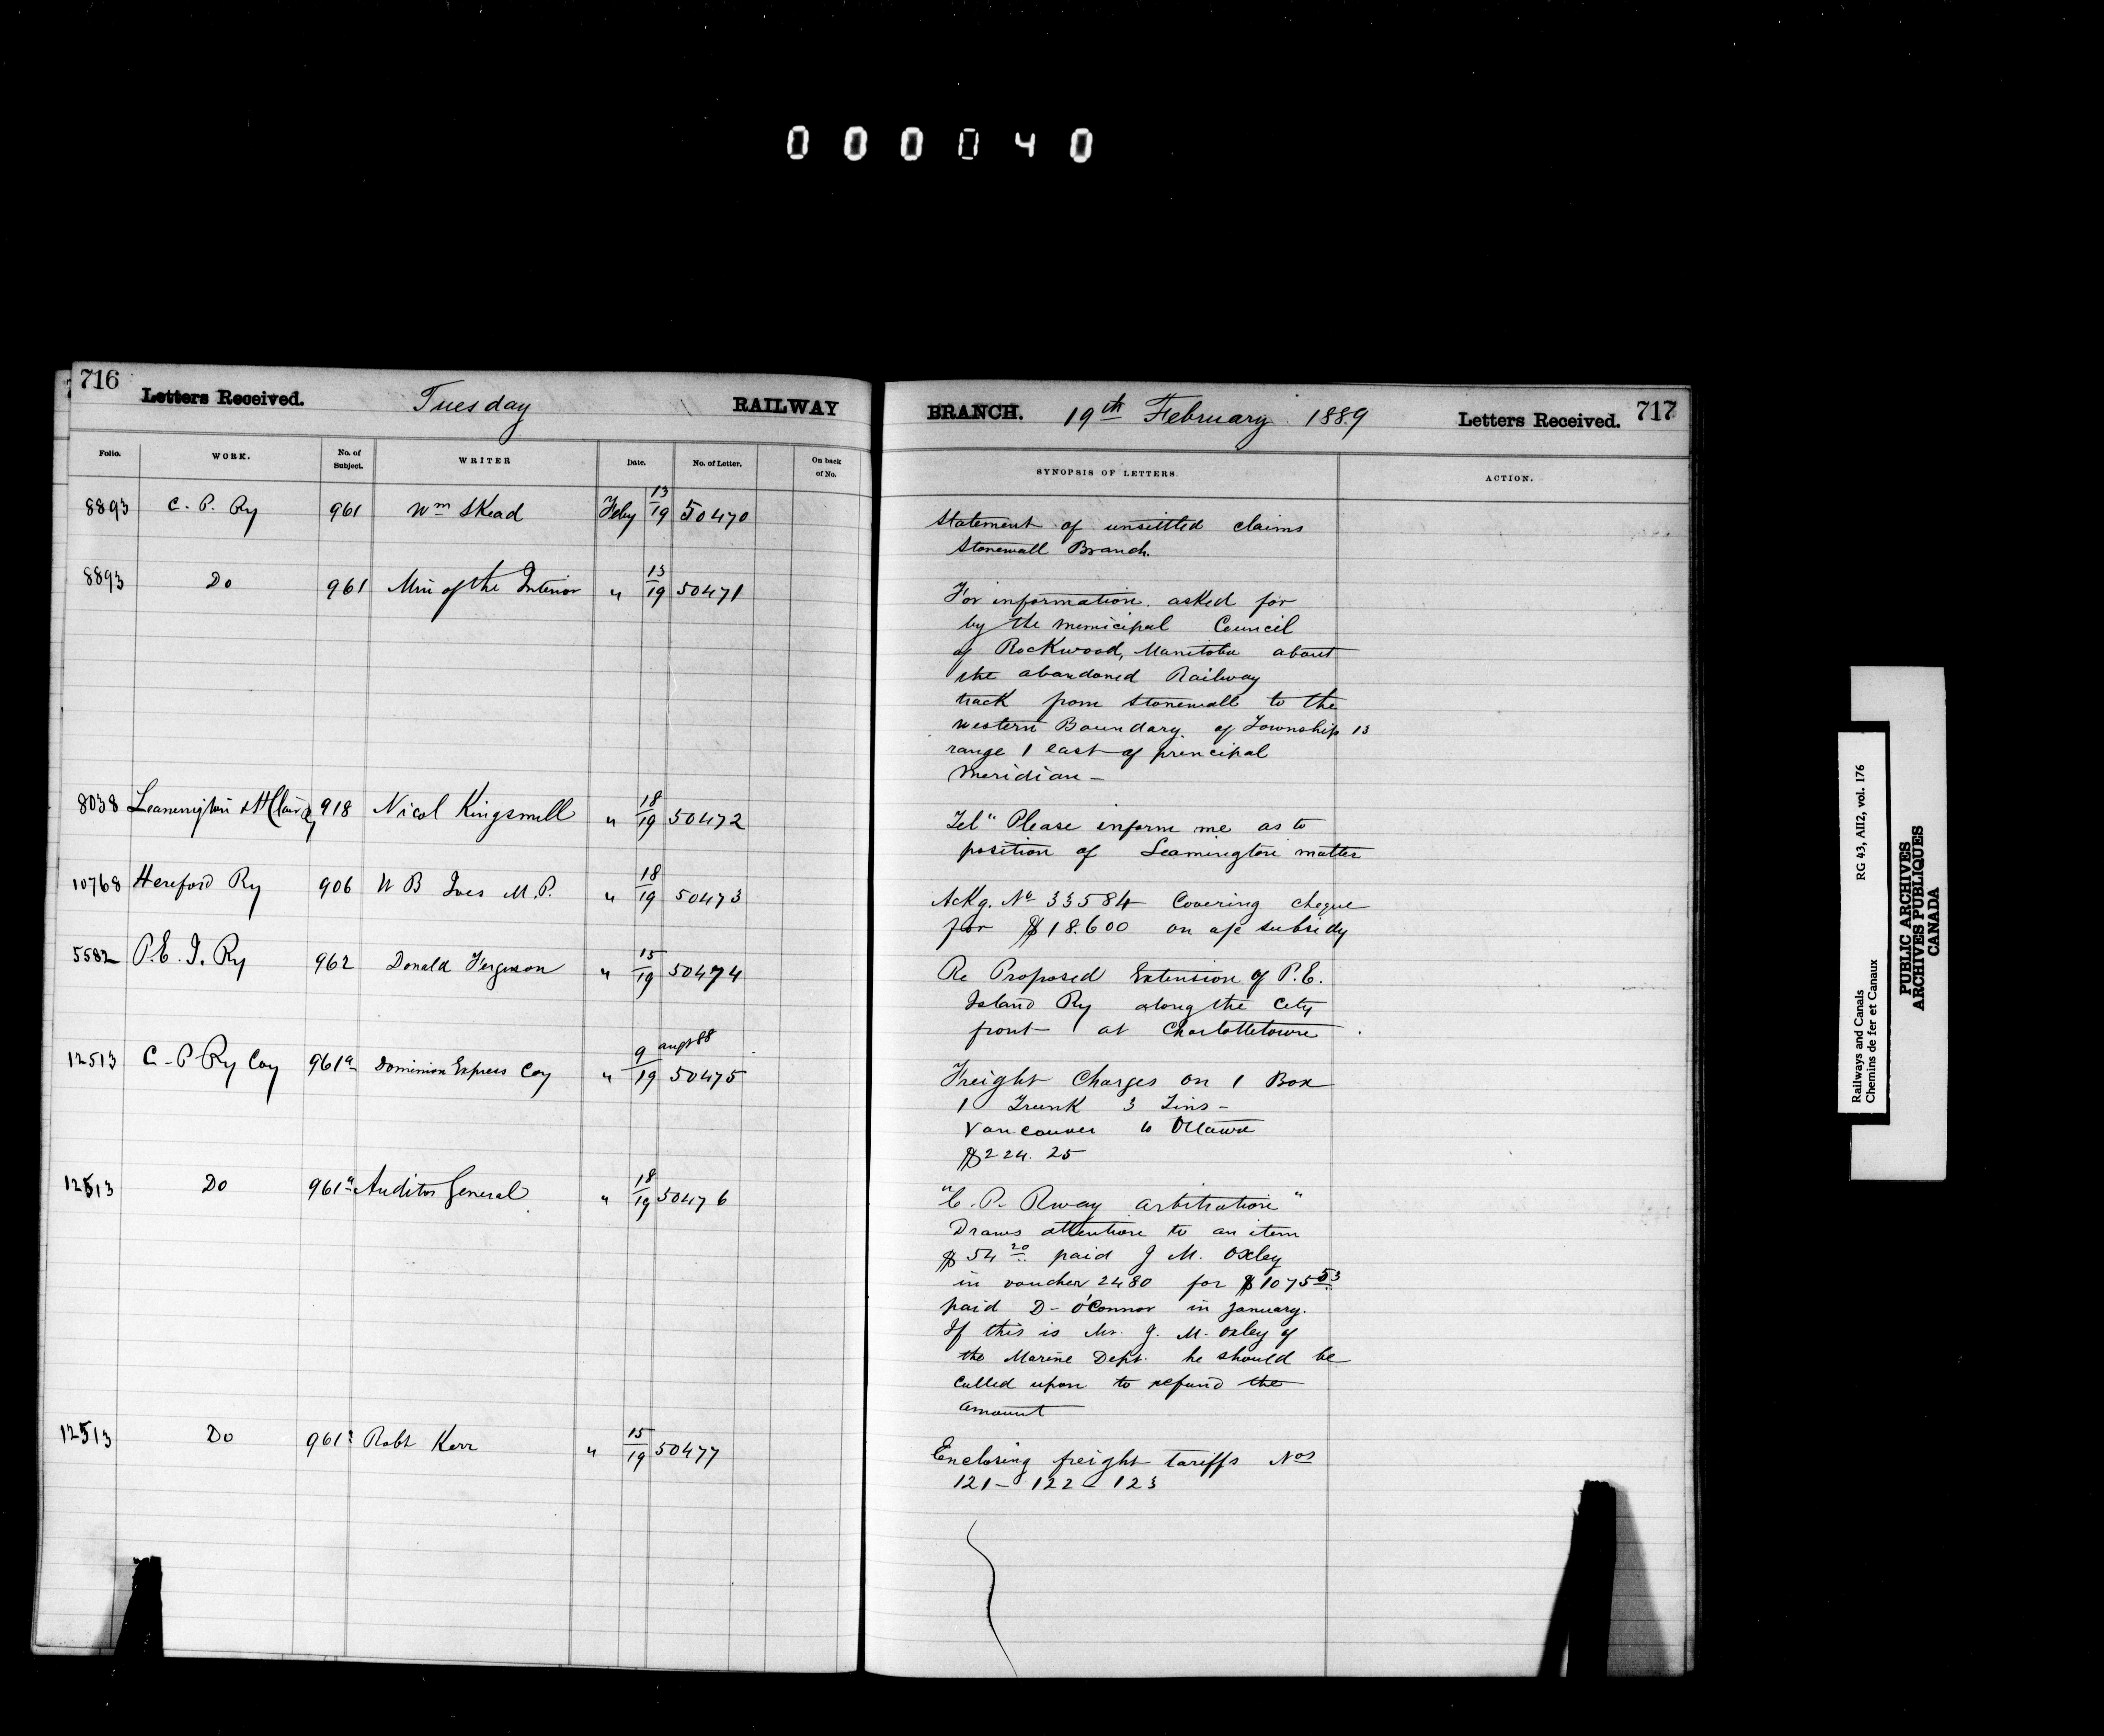 000040
716
Letters Received.
Tuesday
RAILWAY
Folio.
WORK.
No. of Subject.
WRITER
Date.
No. of Letter.
On back of No.
8893 C. P. Ry 961 Wm Skead Feby 13/19 50470
8893 Do 961 Min of the Interior " 13/19 50471
8038 Leamington & St Clair Ry 918 Nicol Kingsmill " 18/19 50472
10768 Hereford Ry 906 W B Ives M.P. " 18/19 50473
5582 P.E.I. Ry 962 Donald Ferguson " 15/19 50474
12513 C-P Ry Coy 961a Dominion Express Coy " 9 augt 88/19 50475
12513 Do 961a Auditor General " 18/19 50476
12513 Do 961a Robt Kerr " 15/19 50477
BRANCH.
19th February 1889
Letters Received.
717
SYNOPSIS OF LETTERS.
ACTION.
Statement of unsettled claims
Stonewall Branch.
For information asked for
by the Municipal Council
of Rockwood, Manitoba about
the abandoned Railway
track from Stonewall to the
western Boundary of Township 13
range 1 east of principal
Meridian -
Tel "Please inform me as to
position of Leamington matter
Ackg. No 33584 Covering cheque
for $18.600 on a/c subsidy
Re Proposed Extension of P.E.
Island Ry along the City
front at Charlottetown
Freight Charges on 1 Box
1 Trunk 3 Tins -
Vancouver to Ottawa
$224.25
"C. P. Rway arbitration"
Draws attention to an item
$54 20 paid J M. Oxley
in voucher 2480 for $1075 53
paid D- O'Connor in January.
If this is Mr. J. M. Oxley of
the Marine Dept. he should be
called upon to refund the
amount
Enclosing freight tariffs Nos
121 - 122 - 123
Railways and Canals
Chemins de fer et Canaux
RG 43, AII2, vol. 176
PUBLIC ARCHIVES
ARCHIVES PUBLIQUES
CANADA